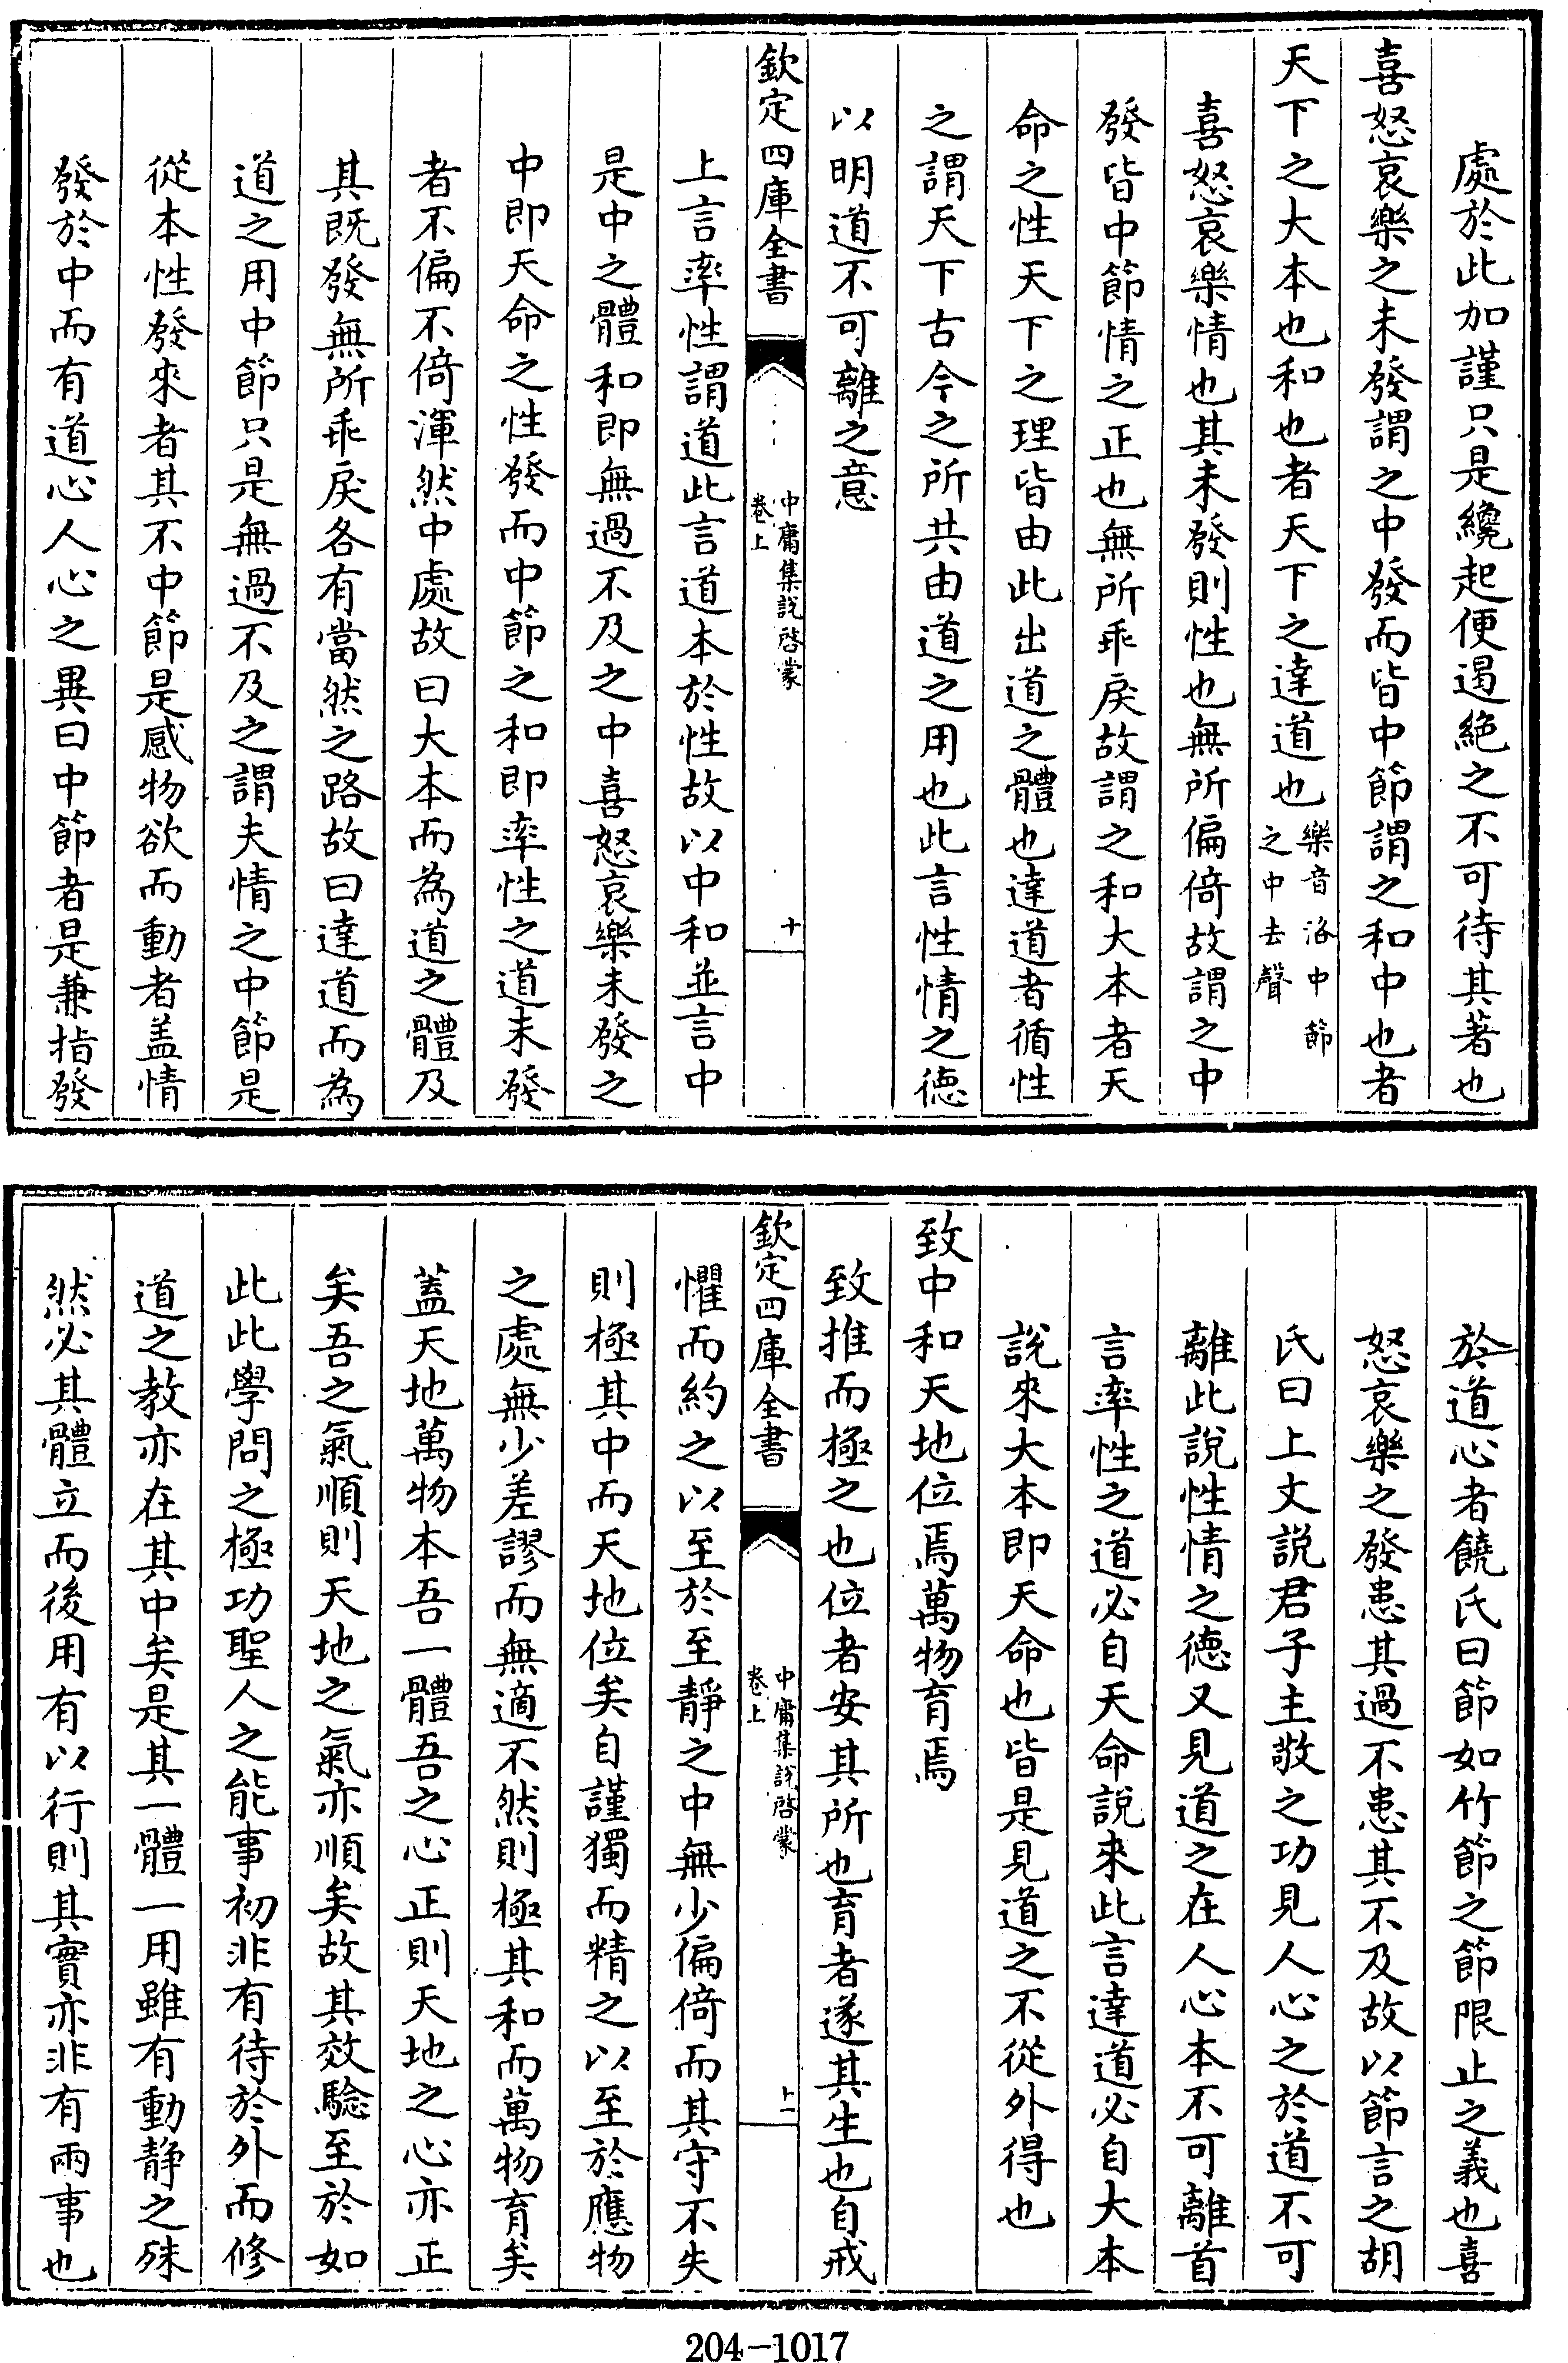 處於此加謹只是纔起便遏絶之不可待其著也
喜怒哀樂之未發謂之中發而皆中節謂之和中也者
天下之大本也和也者天下之達道也樂音洛中節
之中去聲
喜怒哀樂情也其未發則性也無所偏倚故謂之中
發皆中節情之正也無所乖戾故謂之和大本者天
命之性天下之理皆由此出道之體也達道者循性
之謂天下古今之所共由道之用也此言性情之德
以明道不可離之意
欽定四庫全書
中庸集說啓蒙
卷上
十
上言率性謂道此言道本於性故以中和並言中
是中之體和即無過不及之中喜怒哀樂未發之
中即天命之性發而中節之和即率性之道未發
者不偏不倚渾然中處故曰大本而為道之體及
其既發無所乖戾各有當然之路故曰達道而為
道之用中節只是無過不及之謂夫情之中節是
從本性發來者其不中節是感物欲而動者盖情
發於中而有道心人心之異曰中節者是兼指發
於道心者饒氏曰節如竹節之節限止之義也喜
怒哀樂之發患其過不患其不及故以節言之胡
氏曰上文説君子主敬之功見人心之於道不可
離此說性情之德又見道之在人心本不可離首
言率性之道必自天命説來此言達道必自大本
說來大本即天命也皆是見道之不從外得也
致中和天地位焉萬物育焉
致推而極之也位者安其所也育者遂其生也自戒
欽定四庫全書
中庸集說啓蒙
卷上
十一
懼而約之以至於至靜之中無少偏倚而其守不失
則極其中而天地位矣自謹獨而精之以至於應物
之處無少差謬而無適不然則極其和而萬物育矣
蓋天地萬物本吾一體吾之心正則天地之心亦正
矣吾之氣順則天地之氣亦順矣故其效驗至於如
此此學問之極功聖人之能事初非有待於外而修
道之教亦在其中矣是其一體一用雖有動静之殊
然必其體立而後用有以行則其實亦非有兩事也
204-1017